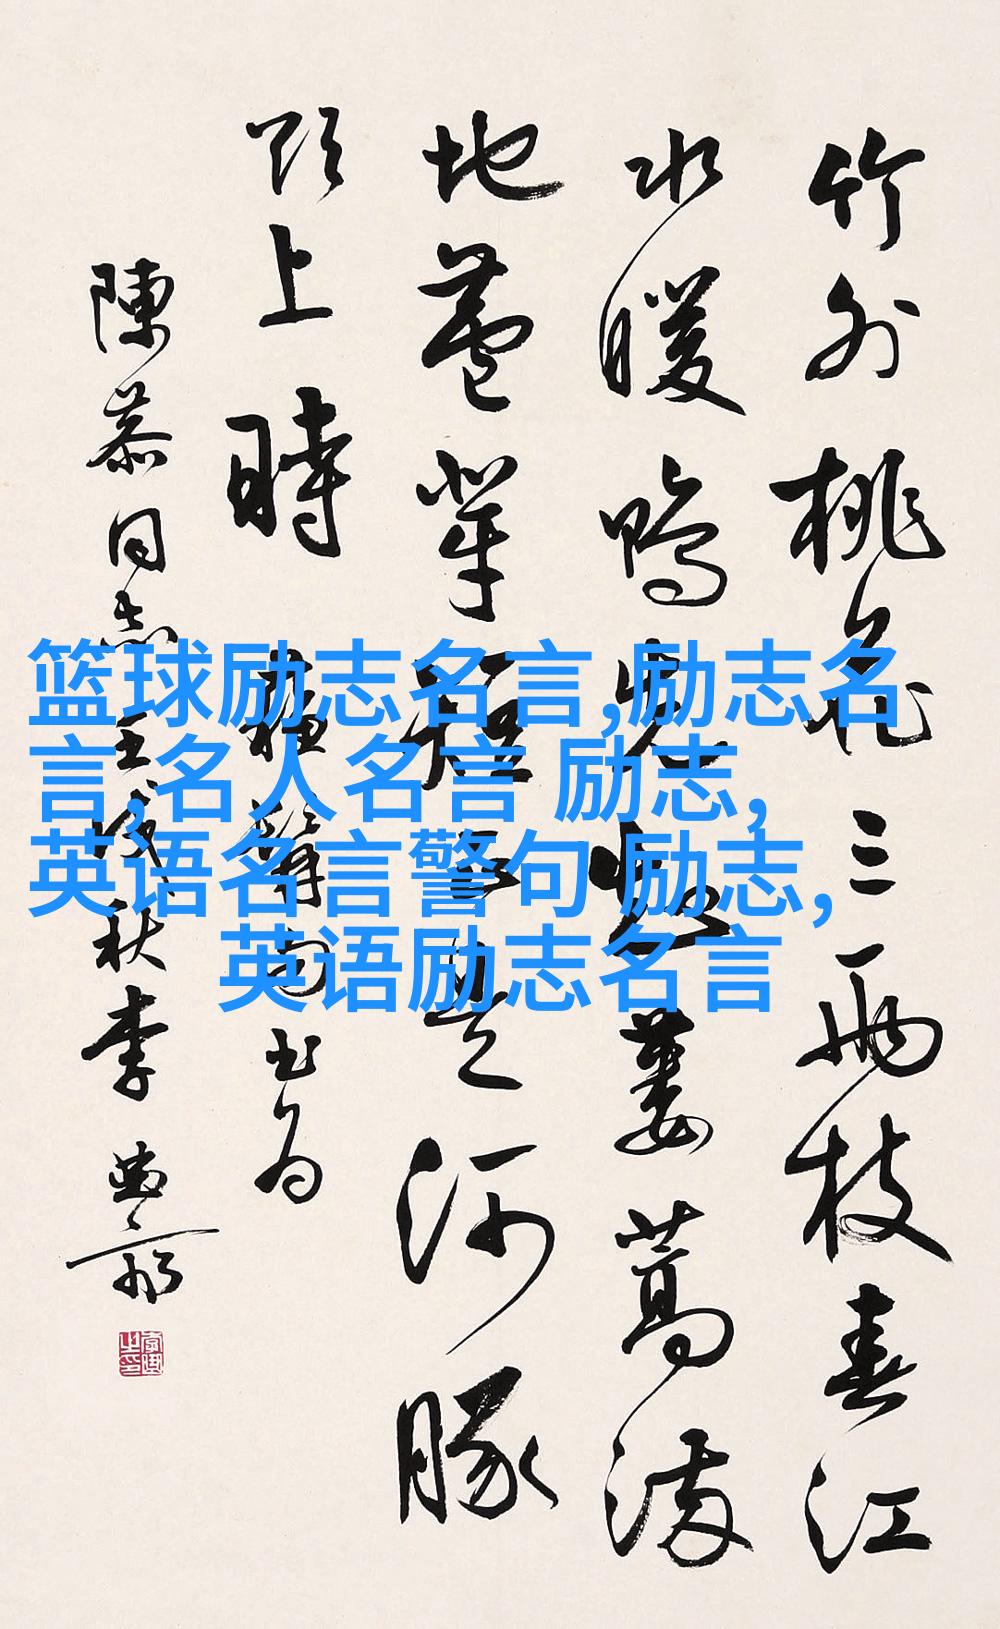 竹外桃花三两枝春江
水暖鴨先知蔞蒿滿
地蘆芽短正是河豚
欲上時
書為
陳同志壬戌秋李
篮球励志名言,励志名
言,名人名言 励志,
英语名言警句 励志,
英语励志名言